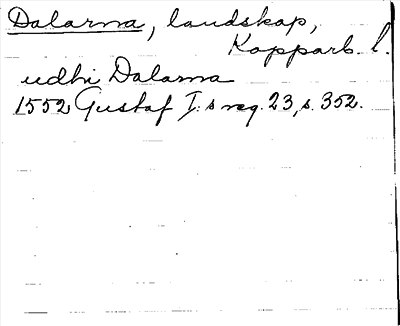 Dalarna, landskap,
Kopparb. l.
udhi Dalarna
1552 Gustaf I:s reg. 23, s. 352.